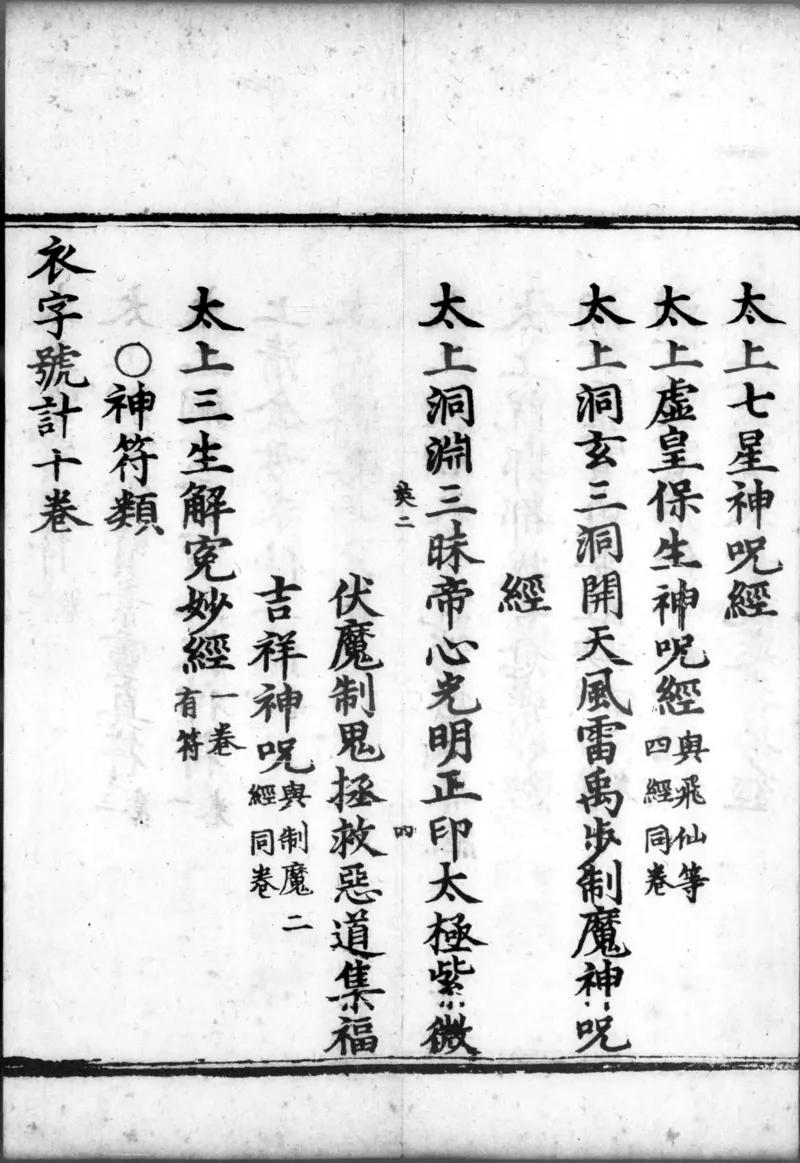 太上七星神呪經
太上虛皇保生神呪經 與飛仙等四經同卷
太上洞玄三洞開天風雷禹步制魔神呪
經
太上洞淵三昧帝心光明正印太極紫微
伏魔制鬼拯救惡道集福
吉祥神呪經 與制魔二經同卷
太上三生解寃妙經 一卷有符
〇神符類
衣字號計十卷